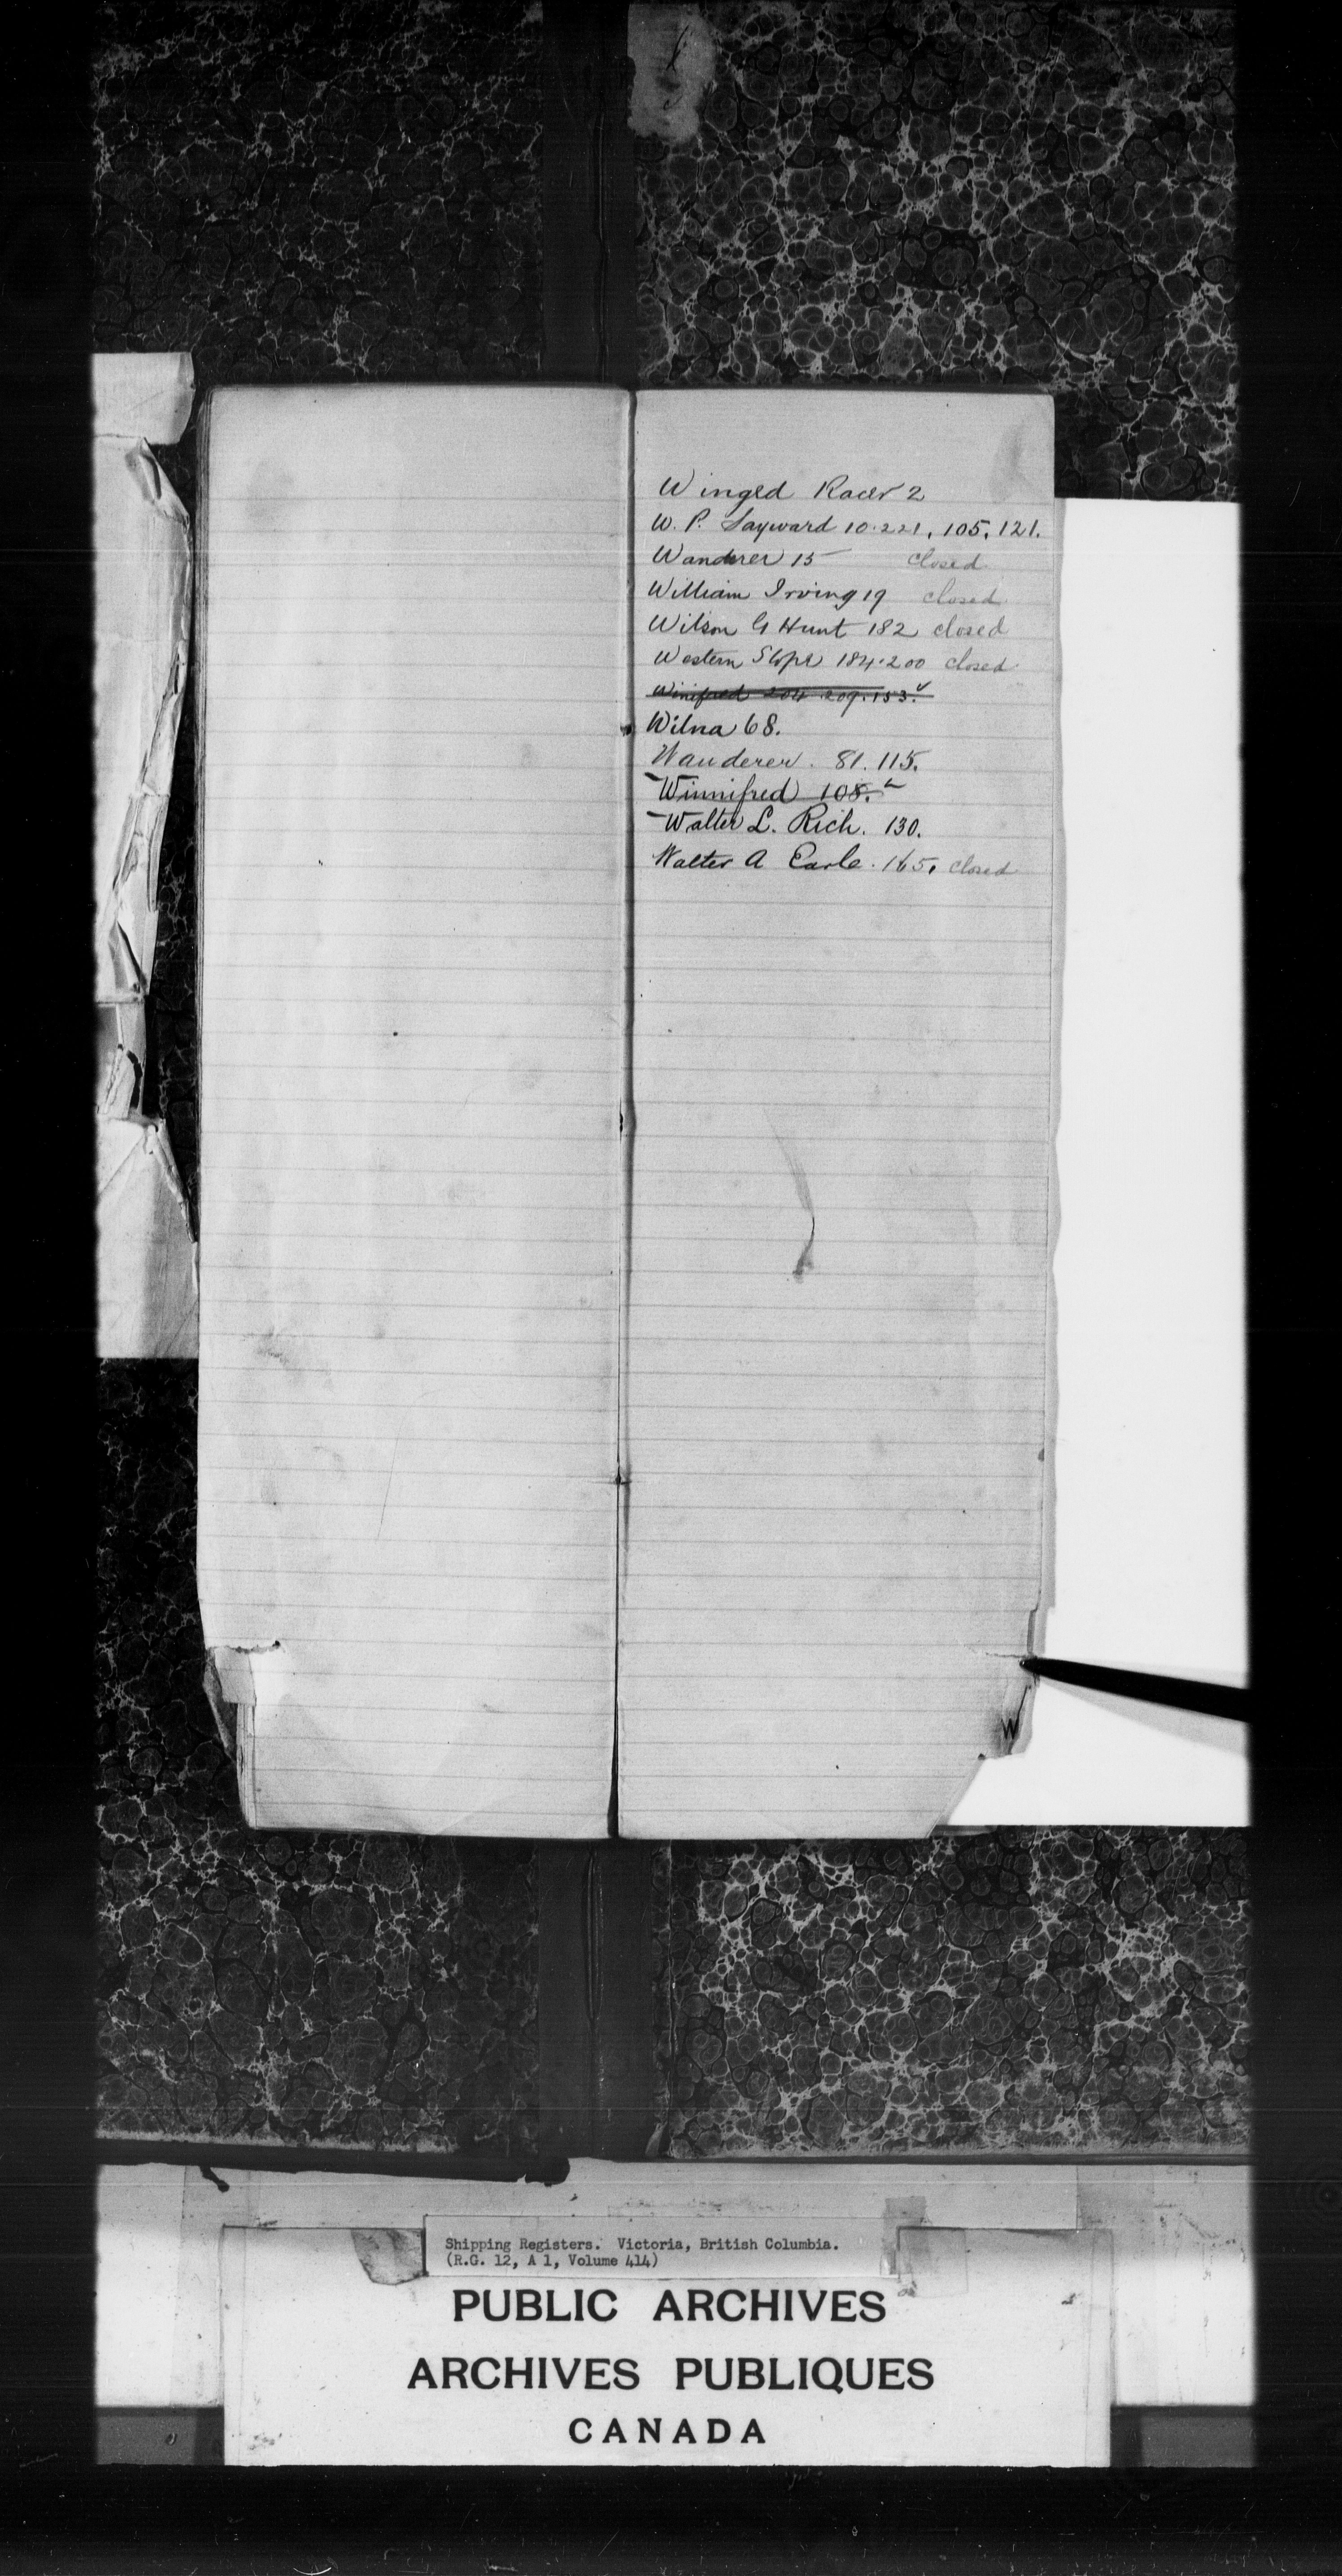 Winged Racer 2
W. P. Sayward 10.221, 105, 121.
Wanderer 15 closed
William Irving 19 closed
Wilson G Hunt 182 closed
Western Slope 184.200 closed
Winifred 204.209.153.
Wilna 68.
Wanderer. 81. 115.
Winnifred 108.
Walter L. Rich. 130.
Walter A Earle. 165. closed
W
Shipping Registers. Victoria, British Columbia.
(R.G. 12, A 1, Volume 414)
PUBLIC ARCHIVES
ARCHIVES PUBLIQUES
CANADA